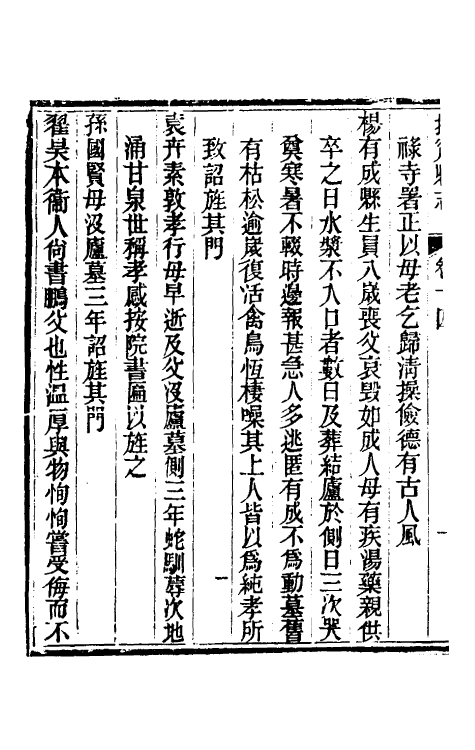 縣志 卷十四
祿寺署正以母老乞歸淸操儉德有古人風
楊有成縣生員八歲喪父哀毀如成人母有疾湯藥親供
卒之日水漿不入口者數日及葬結廬於側日三次哭
奠寒暑不輟時邊報甚急人多逃匿有成不爲動墓舊
有枯松逾歲復活禽鳥恆棲噪其上人皆以爲純孝所
致詔旌其門
袁卉素敦孝行母早逝及父沒廬墓側三年蛇馴蓐次地
涌甘泉世稱孝感按院書匾以旌之
孫國賢母沒廬墓三年詔旌其門
翟昊本衞人尙書鵬父也性溫厚與物恂恂嘗受侮而不